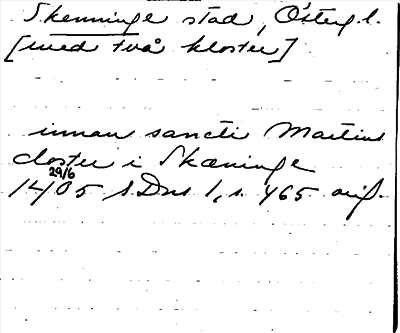 Skenninge stad, Östergl.
[med två kloster]
innan sancti Martins
closter i Skæninge
29/6
1405 SDns 1, s. 465 orig.